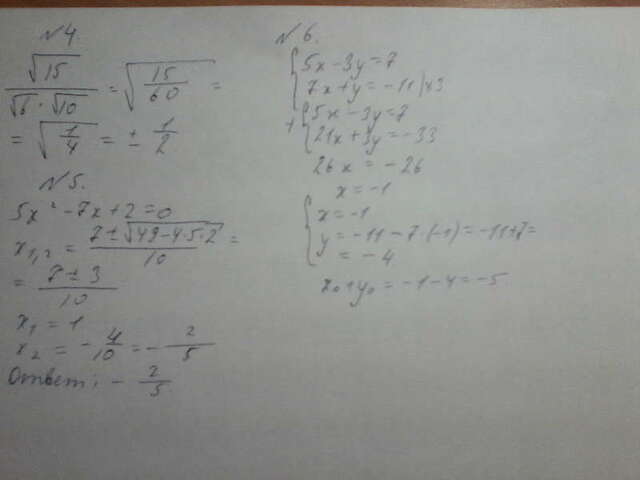 №4
√15 / (√6 · √10) = √(15/60) =
= √(1/4) = ± 1/2
№5.
5x² - 7x + 2 = 0
x₁,₂ = (7 ± √(49 - 4·5·2)) / 10 =
= (7 ± 3) / 10
x₁ = 1
x₂ = - 4/10 = - 2/5
Ответ: - 2/5
№6.
{ 5x - 3y = 7
7x + y = -11 |·3
+ { 5x - 3y = 7
21x + 3y = -33
26x = -26
x = -1
{ x = -1
y = -11 - 7·(-1) = -11 + 7 =
= -4
x₀ + y₀ = -1 - 4 = -5